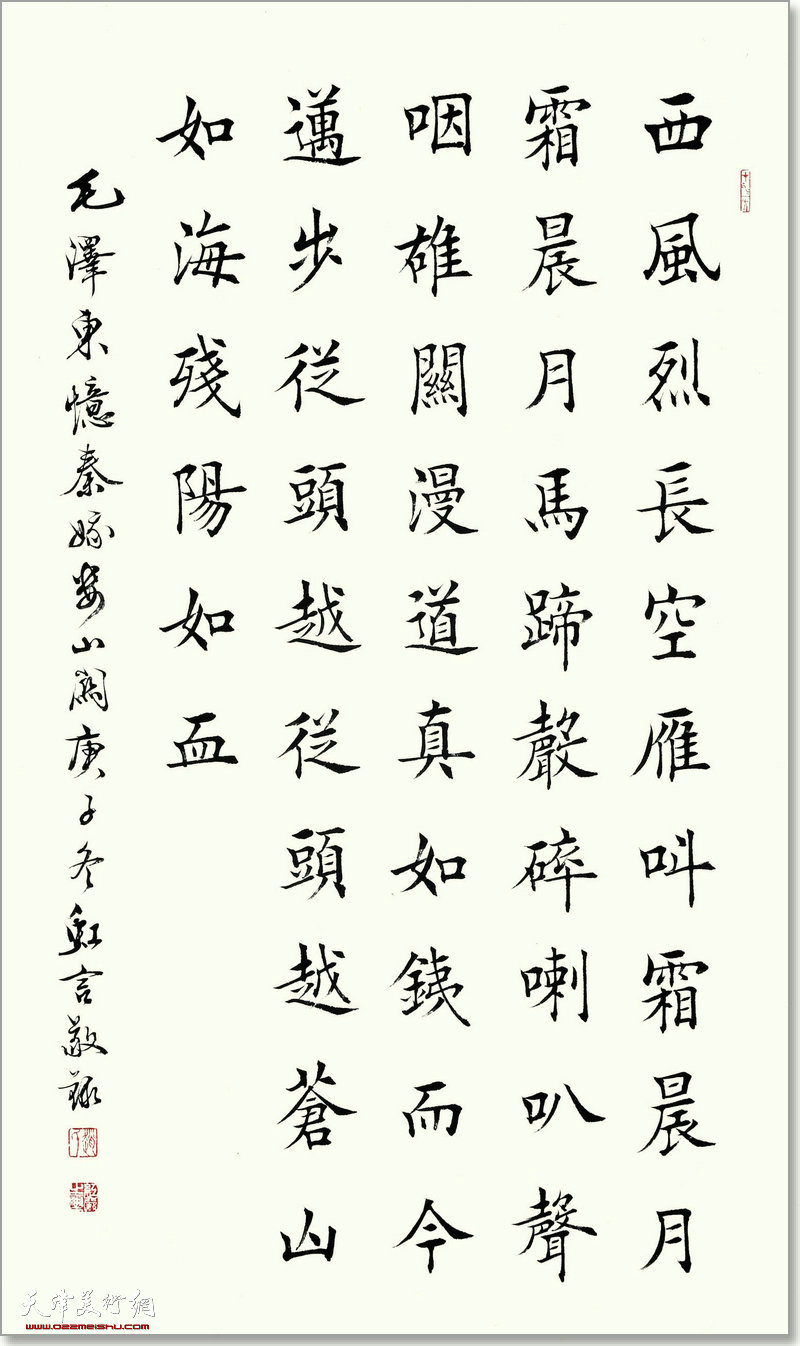 西風烈長空雁叫霜晨月
霜晨月馬蹄聲碎喇叭聲
咽雄關漫道真如銕而今
邁步從頭越從頭越蒼山
如海殘陽如血
毛澤東憶秦娥婁山關庚子冬虹言敬録
天津美術網
www.022meishu.com